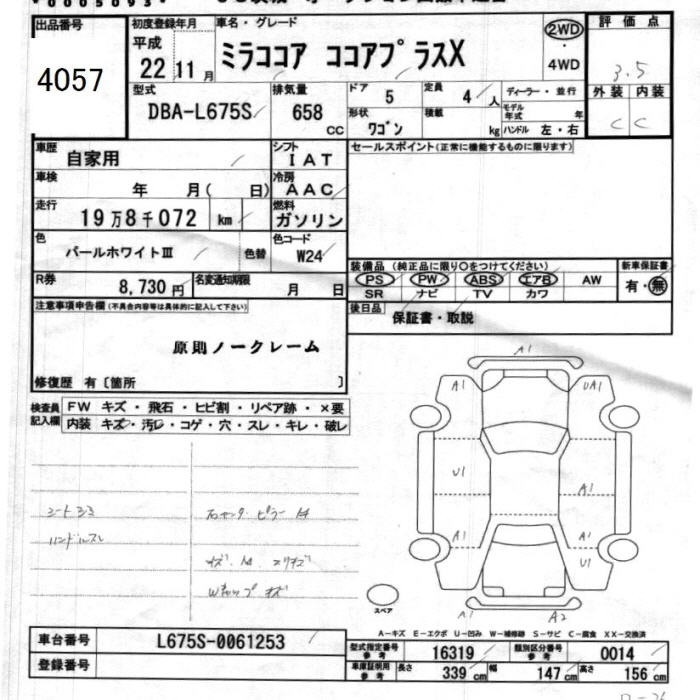 出品番号
4057
初度登録年月
平成
22年 11月
車名・グレード
ミラココア ココアプラスX
2WD
・
4WD
評価点
3.5
外装 内装
C C
型式
DBA-L675S
排気量
658
CC
ドア
5
定員
4人
形状
ワゴン
積載
kg
ディーラー・並行
モデル年式 年
ハンドル 左・右
車歴
自家用
シフト
IAT
車検
年 月( 日)
冷房
AAC
走行
19万8千072 km
燃料
ガソリン
色
パールホワイトⅢ
色替
色コード
W24
R券
8,730円
名変通知期限
月 日
セールスポイント(正常に機能するものに限ります)
装備品(純正品に限り○をつけてください)
PS PW ABS エアB AW
SR ナビ TV カワ
新車保証書
有・無
後日品
保証書・取説
注意事項申告欄(不具合内容等は具体的に記入して下さい)
原則ノークレーム
修復歴 有〔箇所 〕
検査員記入欄
FW キズ・飛石・ヒビ割・リペア跡・×要
内装 キズ・汚レ・コゲ・穴・スレ・キレ・破レ
シートシミ
ハンドルスレ
A1
A1 UA1
U1 A1
A1 A1
U1
A1 A2
スペア
A-キズ E-エクボ U-凹み W-補修跡 S-サビ C-腐食 XX-交換済
車台番号
L675S-0061253
登録番号
型式指定番号
参考
16319
類別区分番号
参考
0014
車庫証明用
参考
長さ 339cm 幅 147cm 高さ 156cm